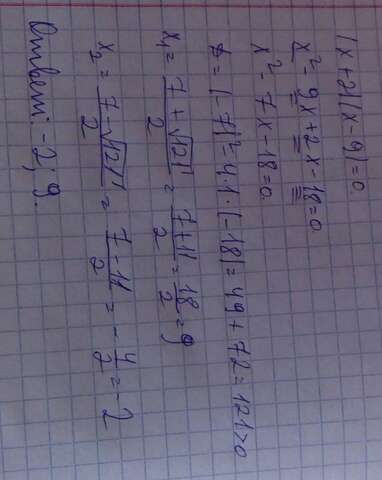 (x+2)(x-9)=0
x²-9x+2x-18=0.
x²-7x-18=0.
D=(-7)²-4·1·(-18)=49+72=121>0
x₁=(7+√121)/2=(7+11)/2=18/2=9
x₂=(7-√121)/2=(7-11)/2=-4/2=-2
Ответ: -2; 9.